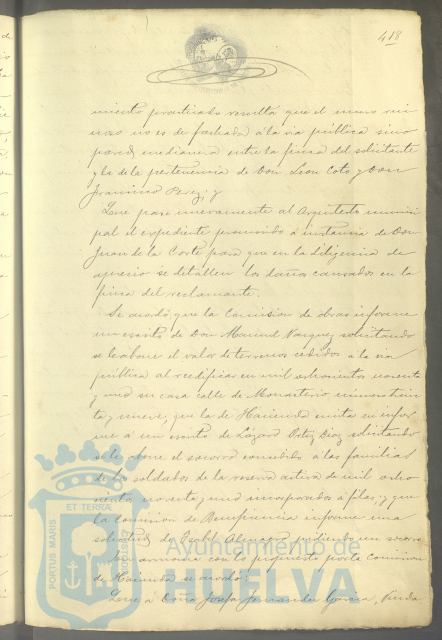 418
miento practicado resulta que el muro rui
noso no es de fachada á la via pública sino
pared medianera entre la finca del solicitante
y la de la pertenencia de Don Leon Coto y Don
Francisco Perez; y
Que pase nuevamente al Arquitecto munici
pal el expediente promovido á instancia de Don
Juan de la Corte para que en la diligencia de
aprecio se detallen los daños causados en la
finca del reclamante.
Se acordó, que la Comision de obras informe
un escrito de Don Manuel Vazquez solicitando
se le abone el valor de terrenos cedidos á la via
pública al reedificar en mil ochocientos noventa
y uno su casa calle de Monasterio numero trein
ta y nueve; que la de Hacienda emita su infor
me á un escrito de Lázaro Ortiz Diaz solicitando
se le abone el socorro concedido á las familias
de los soldados de la reserva activa de mil ocho
cientos noventa y uno incorporados á filas; y que
la Comision de Beneficencia informe una
solicitud de Isabel pidiendo un socorro
con lo propuesto por la Comision
de Hacienda se acordó:
Que á Doña Josefa Fernandez Garcia, viuda
PORTUS MARIS
ET TERRAE
CUSTODIA
Ayuntamiento de
HUELVA